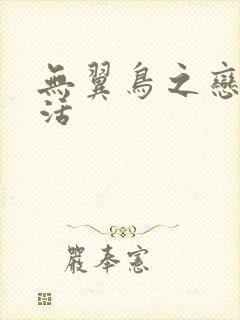 無翼鳥之戀
活
嚴奉憲